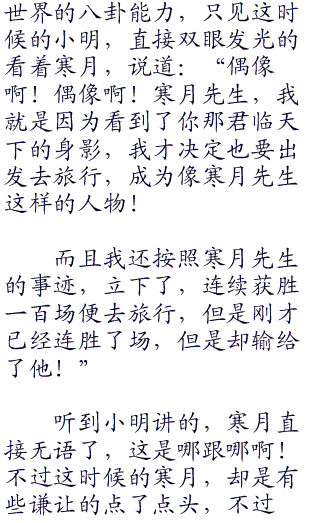 世界的八卦能力，只见这时
候的小明，直接双眼发光的
看着寒月，说道：“偶像
啊！偶像啊！寒月先生，我
就是因为看到了你那君临天
下的身影，我才决定也要出
发去旅行，成为像寒月先生
这样的人物！
而且我还按照寒月先生
的事迹，立下了，连续获胜
一百场便去旅行，但是刚才
已经连胜了场，但是却输给
了他！”
听到小明讲的，寒月直
接无语了，这是哪跟哪啊！
不过这时候的寒月，却是有
些谦让的点了点头，不过